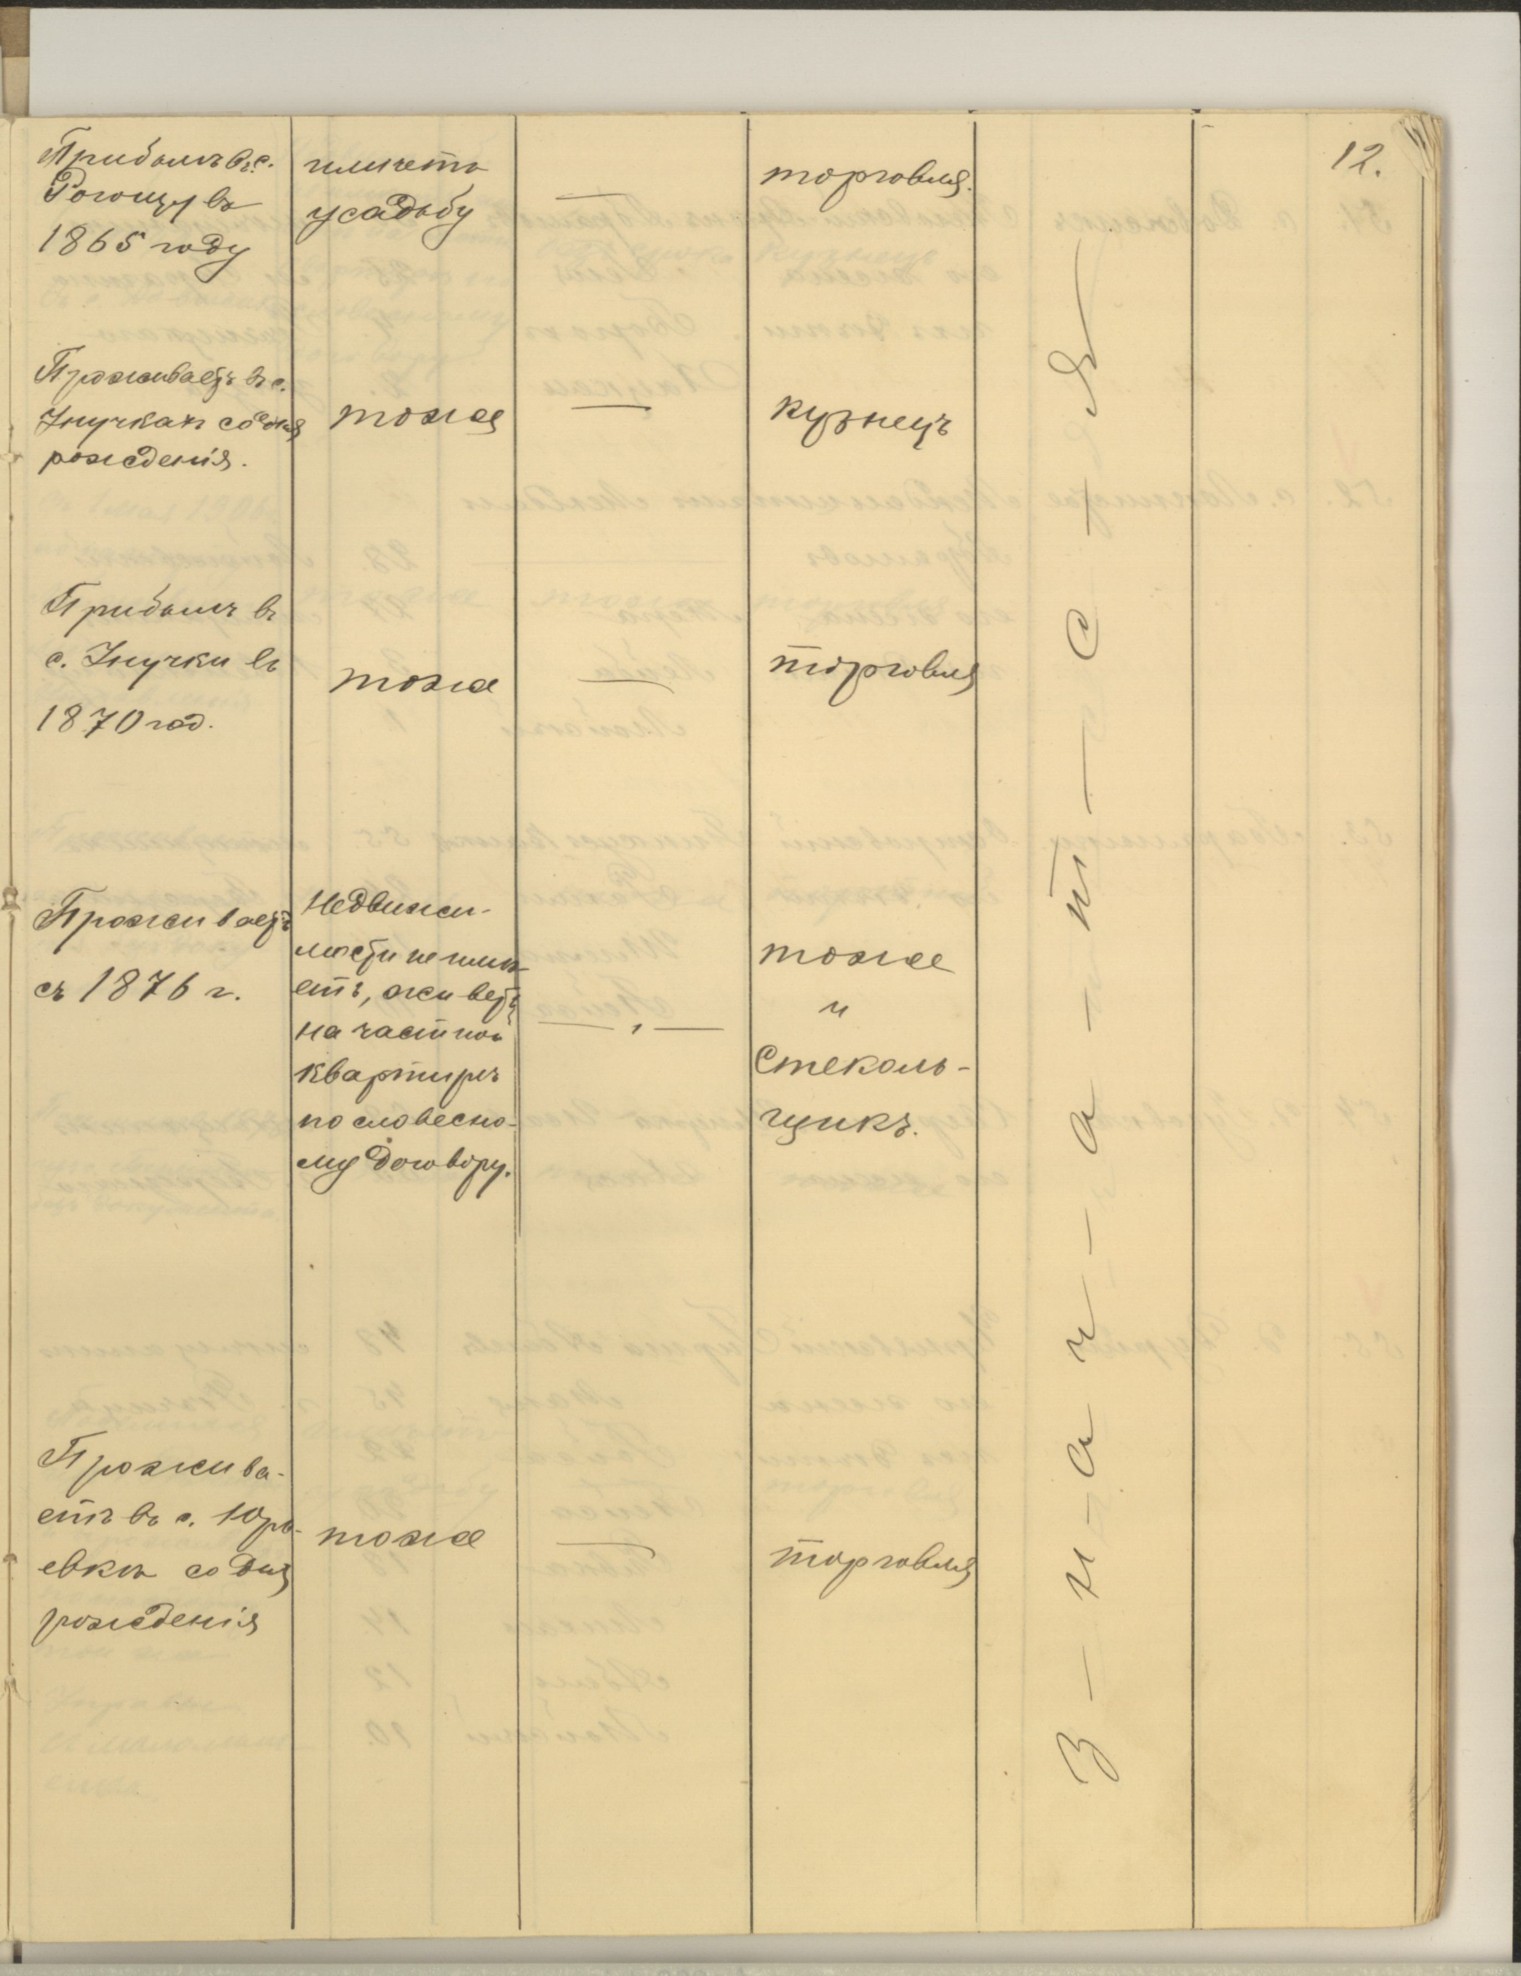 12.
Прибылъ въ с.
Рогощу въ
1865 году
имѣетъ
усадьбу
—
торговля.
Проживаетъ въ с.
Унучкахъ со дня
рожденія.
тоже
—
кузнецъ
Прибылъ въ
с. Унучки въ
1870 год.
тоже
—
торговля
Проживаетъ
съ 1876 г.
Недвижи-
мости не имѣ-
етъ, живетъ
на частной
квартирѣ
по словесно-
му договору.
— „ —
тоже
и
стеколь-
щикъ.
Прожива-
етъ въ с. Юрь-
евкѣ со дня
рожденія
тоже
—
торговля
З-н-а-ч-а-т-с-я